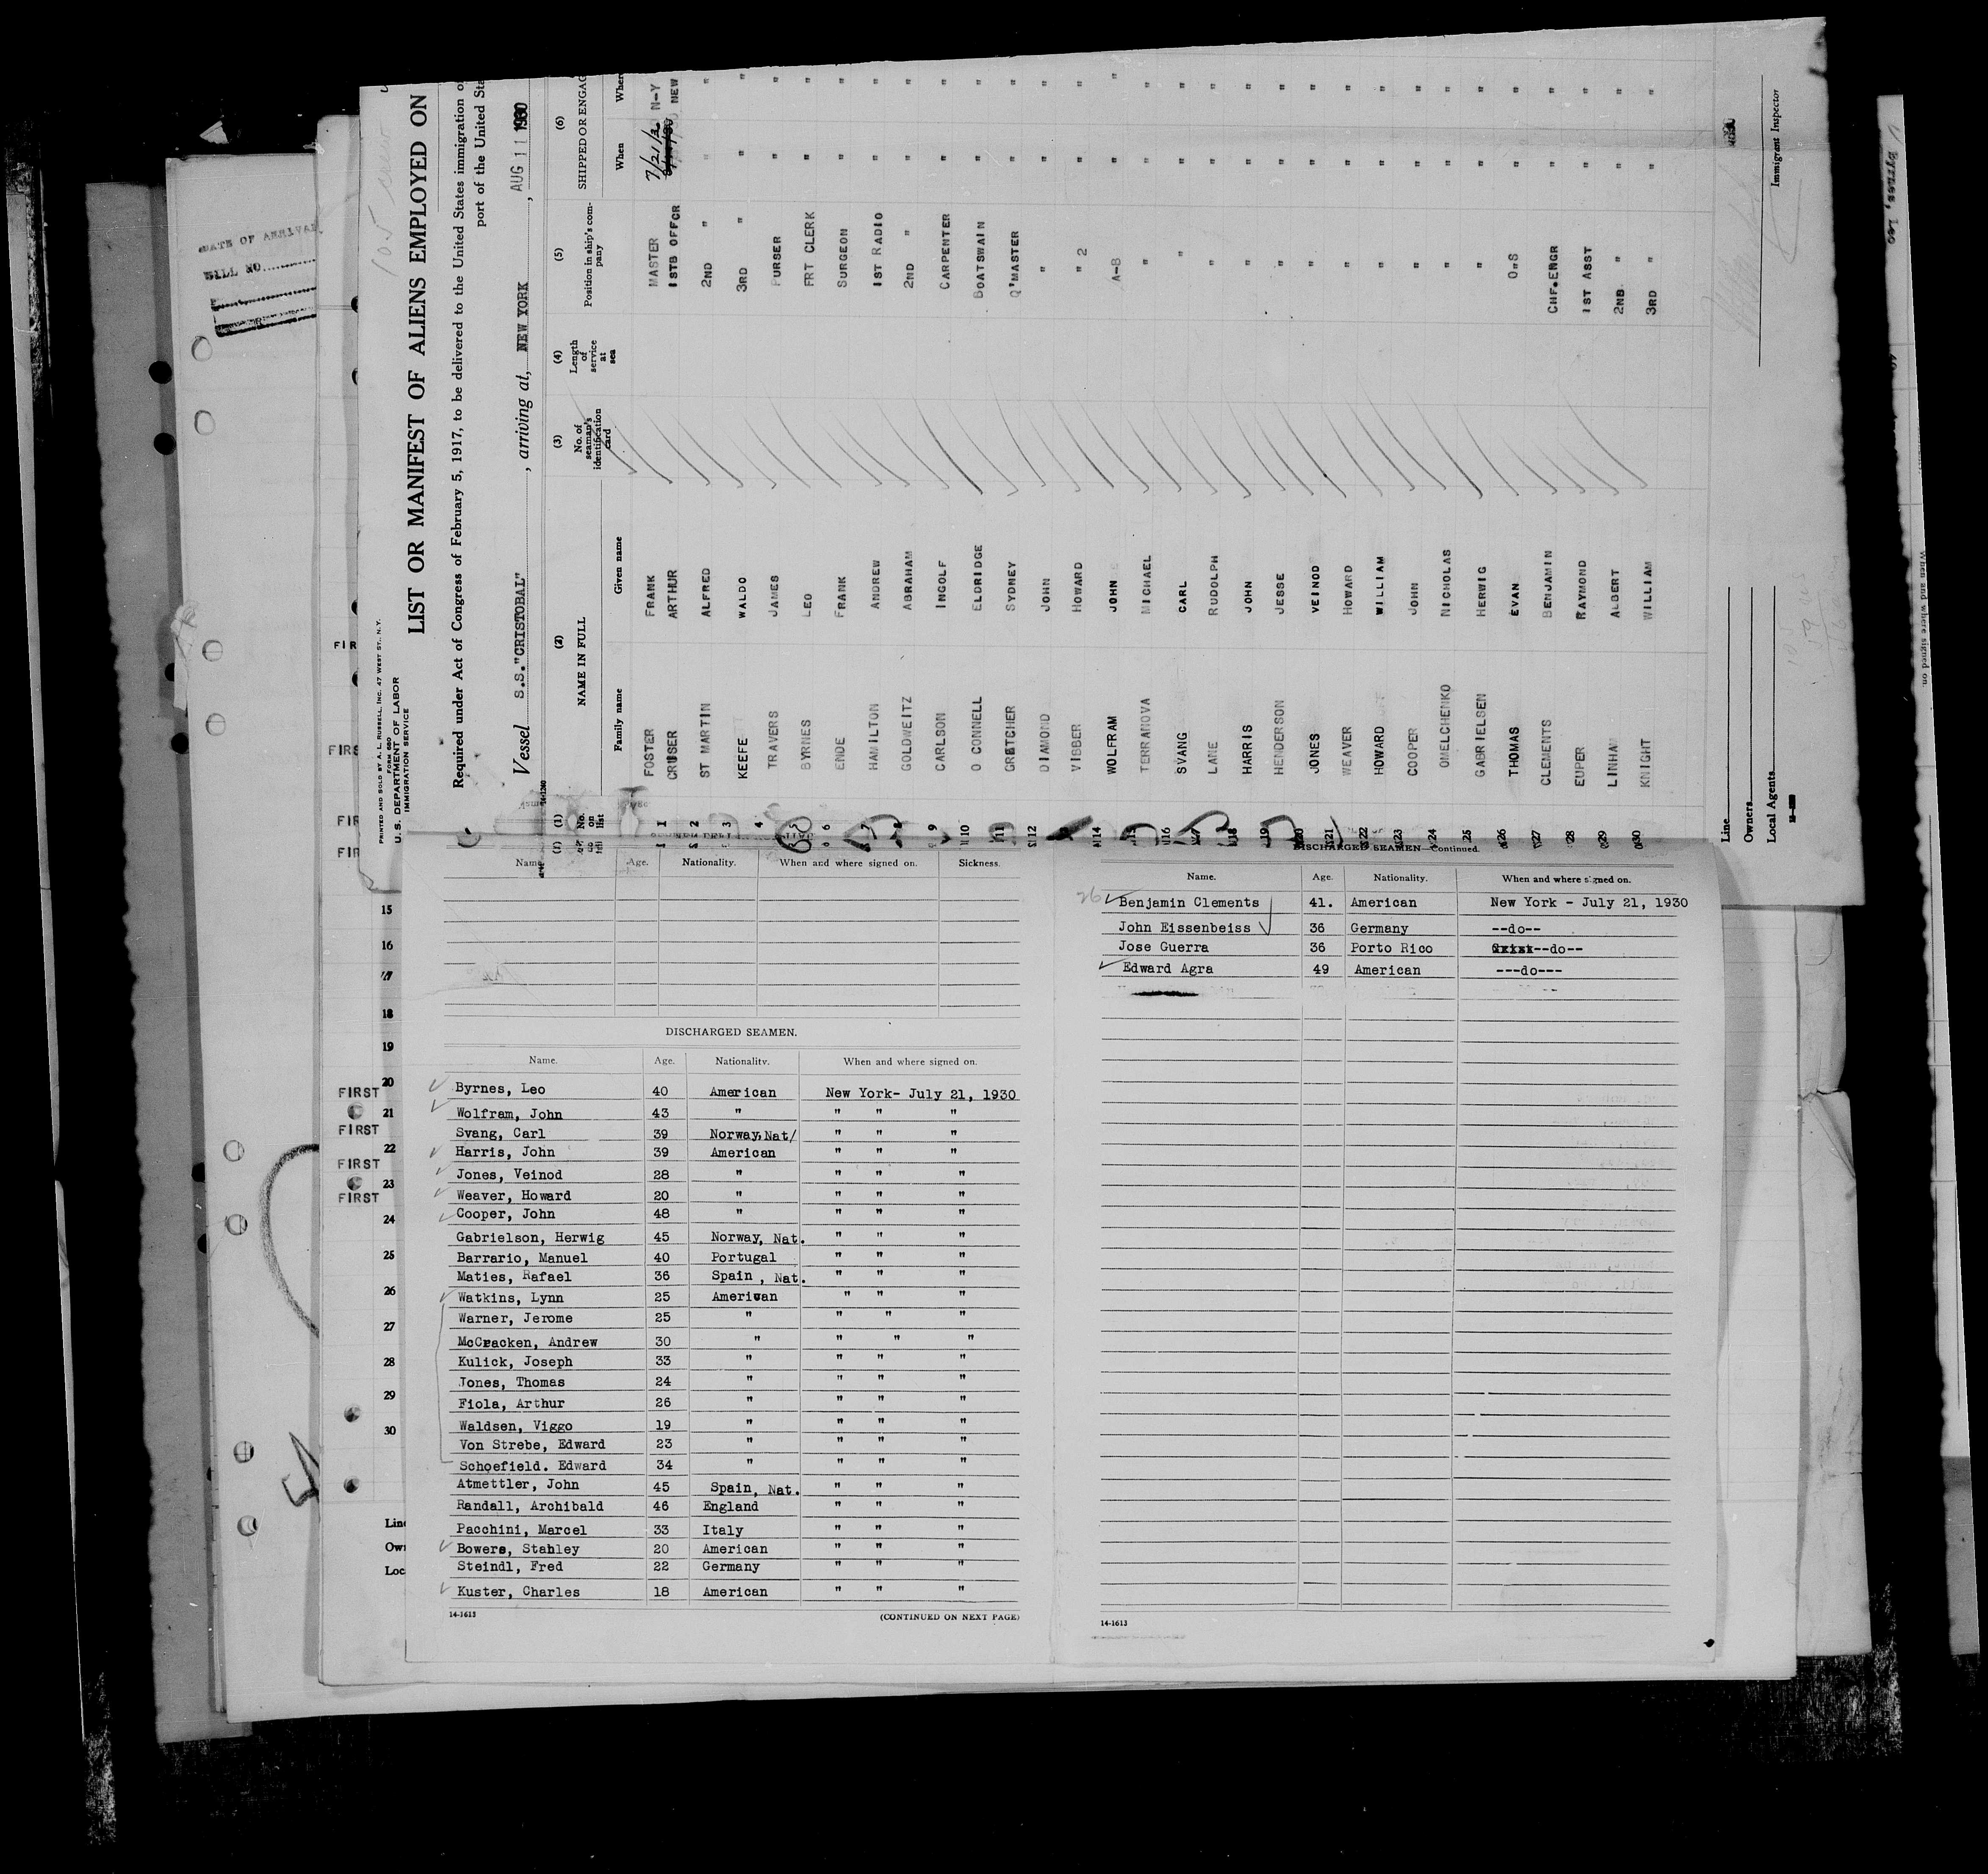 PRINTED AND SOLD BY A. L. RUSSELL, INC. 47 WEST ST., N.Y.
FORM 680
U. S. DEPARTMENT OF LABOR
IMMIGRATION SERVICE
LIST OR MANIFEST OF ALIENS EMPLOYED ON
Required under Act of Congress of February 5, 1917, to be delivered to the United States immigration
port of the United
Vessel S.S."CRISTOBAL", arriving at, NEW YORK, AUG 11 1930
(1) No. on list (2) NAME IN FULL (3) No. of seaman's identification card (4) Length of service at sea (5) Position in ship's company (6) SHIPPED OR
Family name Given name When
1 FOSTER FRANK MASTER 7/21/3 N-Y
CRUSER ARTHUR 1STB OFFCR NEW
2 ST MARTIN ALFRED 2ND " " "
3 KEEFE WALDO 3RD " " "
4 TRAVERS JAMES PURSER " "
5 BYRNES LEO FRT CLERK " "
6 ENDE FRANK SURGEON " "
7 HAMILTON ANDREW 1ST RADIO " "
8 GOLDWEITZ ABRAHAM 2ND " " "
9 CARLSON INGOLF CARPENTER " "
10 O CONNELL ELDRIDGE BOATSWAIN " "
11 GRETCHER SYDNEY Q'MASTER " "
12 DIAMOND JOHN " " "
VISBER HOWARD " 2 " "
14 WOLFRAM JOHN A-B " "
15 TERRANOVA MICHAEL " " "
16 SVANG CARL " " "
17 LANE RUDOLPH " " "
18 HARRIS JOHN " " "
19 HENDERSON JESSE " " "
20 JONES VEINOD " " "
21 WEAVER HOWARD " " "
22 HOWARD WILLIAM " " "
23 COOPER JOHN " " "
24 OMELCHENKO NICHOLAS " " "
25 GABRIELSEN HERWIG " " "
26 THOMAS EVAN O"S " "
27 CLEMENTS BENJAMIN CHF.ENGR " "
28 EUPER RAYMOND 1ST ASST " "
29 LINHAM ALBERT 2NB " " "
30 KNIGHT WILLIAM 3RD " " "
Line
Owners
Local Agents
Immigrant Inspector
DATE OF ARRIVAL
BILL NO.
Byrnes, Leo
When and where signed on.
FIRST
15
16
17
18
19
FIRST 20
21
FIRST
22
FIRST
23
FIRST
24
25
26
27
28
29
30
Name. Age. Nationality. When and where signed on. Sickness.
DISCHARGED SEAMEN.
Name. Age. Nationality. When and where signed on.
Byrnes, Leo 40 American New York- July 21, 1930
Wolfram, John 43 " " " "
Svang, Carl 39 Norway,Nat/ " " "
Harris, John 39 American " " "
Jones, Veinod 28 " " " "
Weaver, Howard 20 " " " "
Cooper, John 48 " " " "
Gabrielson, Herwig 45 Norway, Nat. " " "
Barrario, Manuel 40 Portugal " " "
Maties, Rafael 36 Spain , Nat. " " "
Watkins, Lynn 25 American " " "
Warner, Jerome 25 " " " "
McCracken, Andrew 30 " " " "
Kulick, Joseph 33 " " " "
Jones, Thomas 24 " " " "
Fiola, Arthur 26 " " " "
Waldsen, Viggo 19 " " " "
Von Strebe, Edward 23 " " " "
Schoefield. Edward 34 " " " "
Atmettler, John 45 Spain, Nat. " " "
Randall, Archibald 46 England " " "
Pacchini, Marcel 33 Italy " " "
Bowers, Stahley 20 American " " "
Steindl, Fred 22 Germany " " "
Kuster, Charles 18 American " " "
14-1613 (CONTINUED ON NEXT PAGE)
DISCHARGED SEAMEN—Continued.
Name. Age. Nationality. When and where signed on.
26 Benjamin Clements 41. American New York - July 21, 1930
John Eissenbeiss 36 Germany --do--
Jose Guerra 36 Porto Rico --do--
Edward Agra 49 American ---do---
14-1613